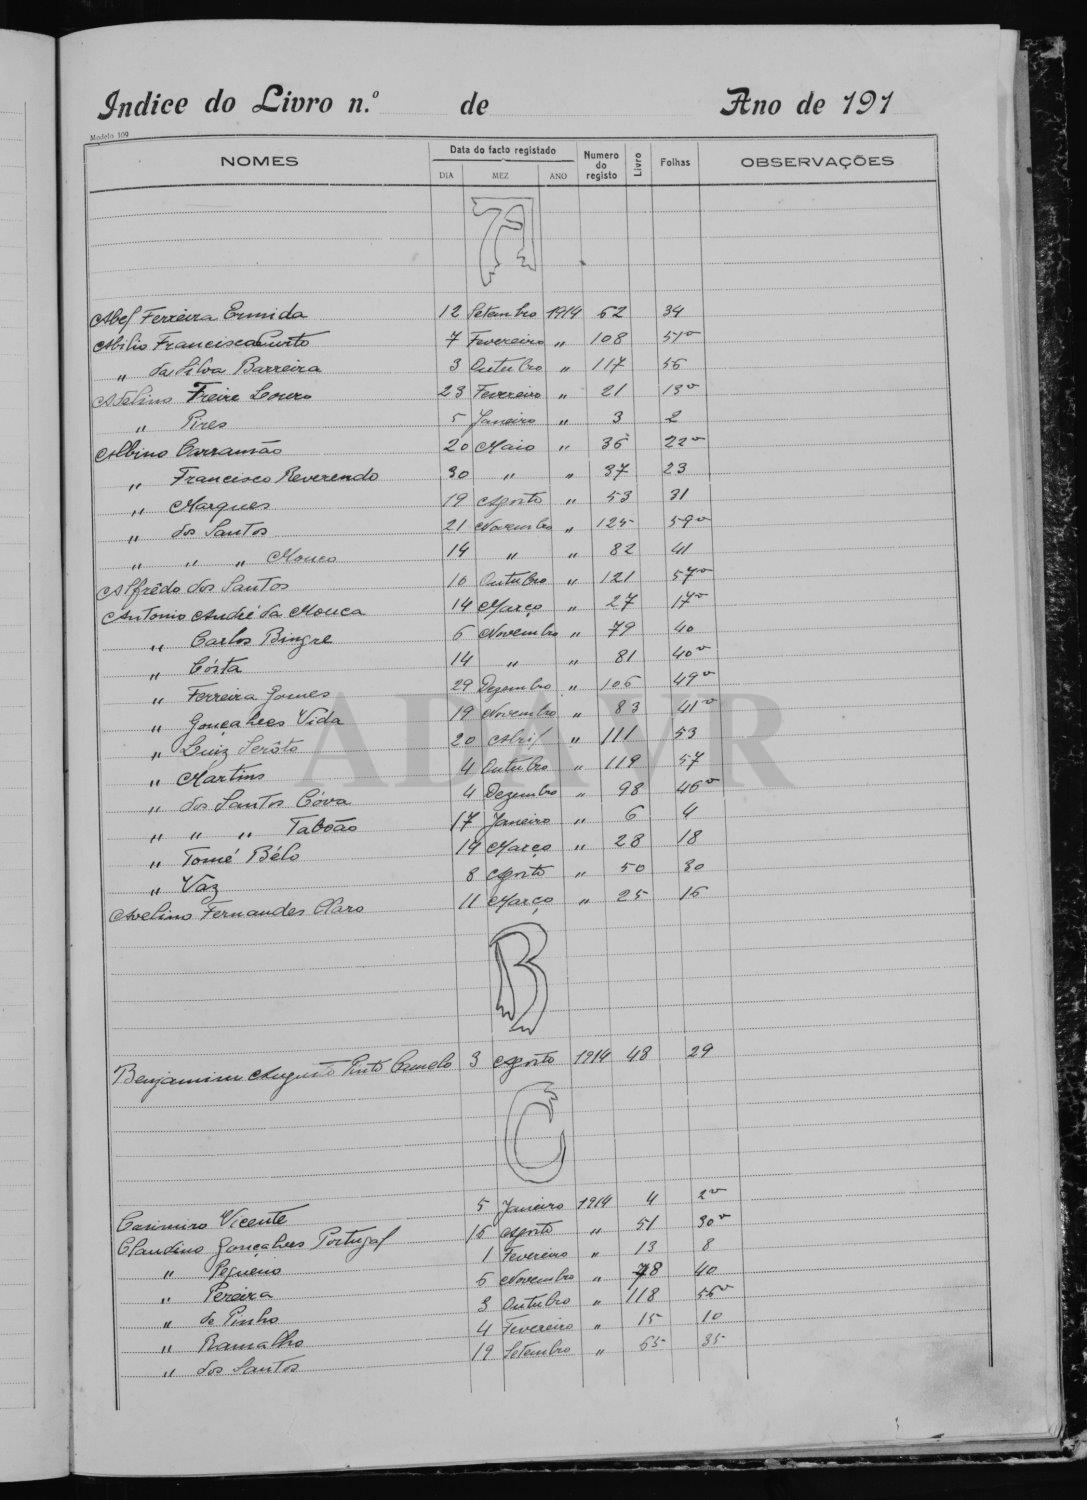 Indice do Livro n.º de Ano de 191
Modelo 109
NOMES Data do facto registado Numero do registo Livro Folhas OBSERVAÇÕES
DIA MEZ ANO
A
Abel Ferreira Ermida 12 Setembro 1914 62 34
Abilio Francisco Curto 7 Fevereiro „ 108 51v
„ da Silva Barreira 3 Outubro „ 117 56
Adelino Freire Louro 23 Fevereiro „ 21 13v
„ Pires 5 Janeiro „ 3 2
Albino Carramão 20 Maio „ 36 22v
„ Francisco Reverendo 30 „ „ 37 23
„ Marques 19 Agosto „ 53 31
„ dos Santos 21 Novembro „ 125 59v
„ „ „ Mouco 14 „ „ 82 41
Alfrêdo dos Santos 16 Outubro „ 121 57v
Antonio André da Mouca 14 Março „ 27 17v
„ Carlos Bingre 6 Novembro „ 79 40
„ Cósta 14 „ „ 81 40v
„ Ferreira Gomes 29 Dezembro „ 106 49v
„ Gonçalves Vida 19 Novembro „ 83 41v
„ Luiz Serôto 20 Abril „ 111 53
„ Martins 4 Outubro „ 119 57
„ dos Santos Cóva 4 Dezembro „ 98 46v
„ „ „ Taboão 17 Janeiro „ 6 4
„ Tomé Bélo 14 Março „ 28 18
„ Vaz 8 Agosto „ 50 30
Avelino Fernandes Claro 11 Março „ 25 16
B
Benjamim Augusto Pinto Camelo 3 Agosto 1914 48 29
C
Casimiro Vicente 5 Janeiro 1914 4 2v
Claudino Gonçalves Portugal 16 Agosto „ 51 30v
„ Pequeno 1 Fevereiro „ 13 8
„ Pereira 6 Novembro „ 78 40
„ de Pinho 3 Outubro „ 118 56v
„ Ramalho 4 Fevereiro „ 15 10
„ dos Santos 19 Setembro „ 65 35
ADAVR